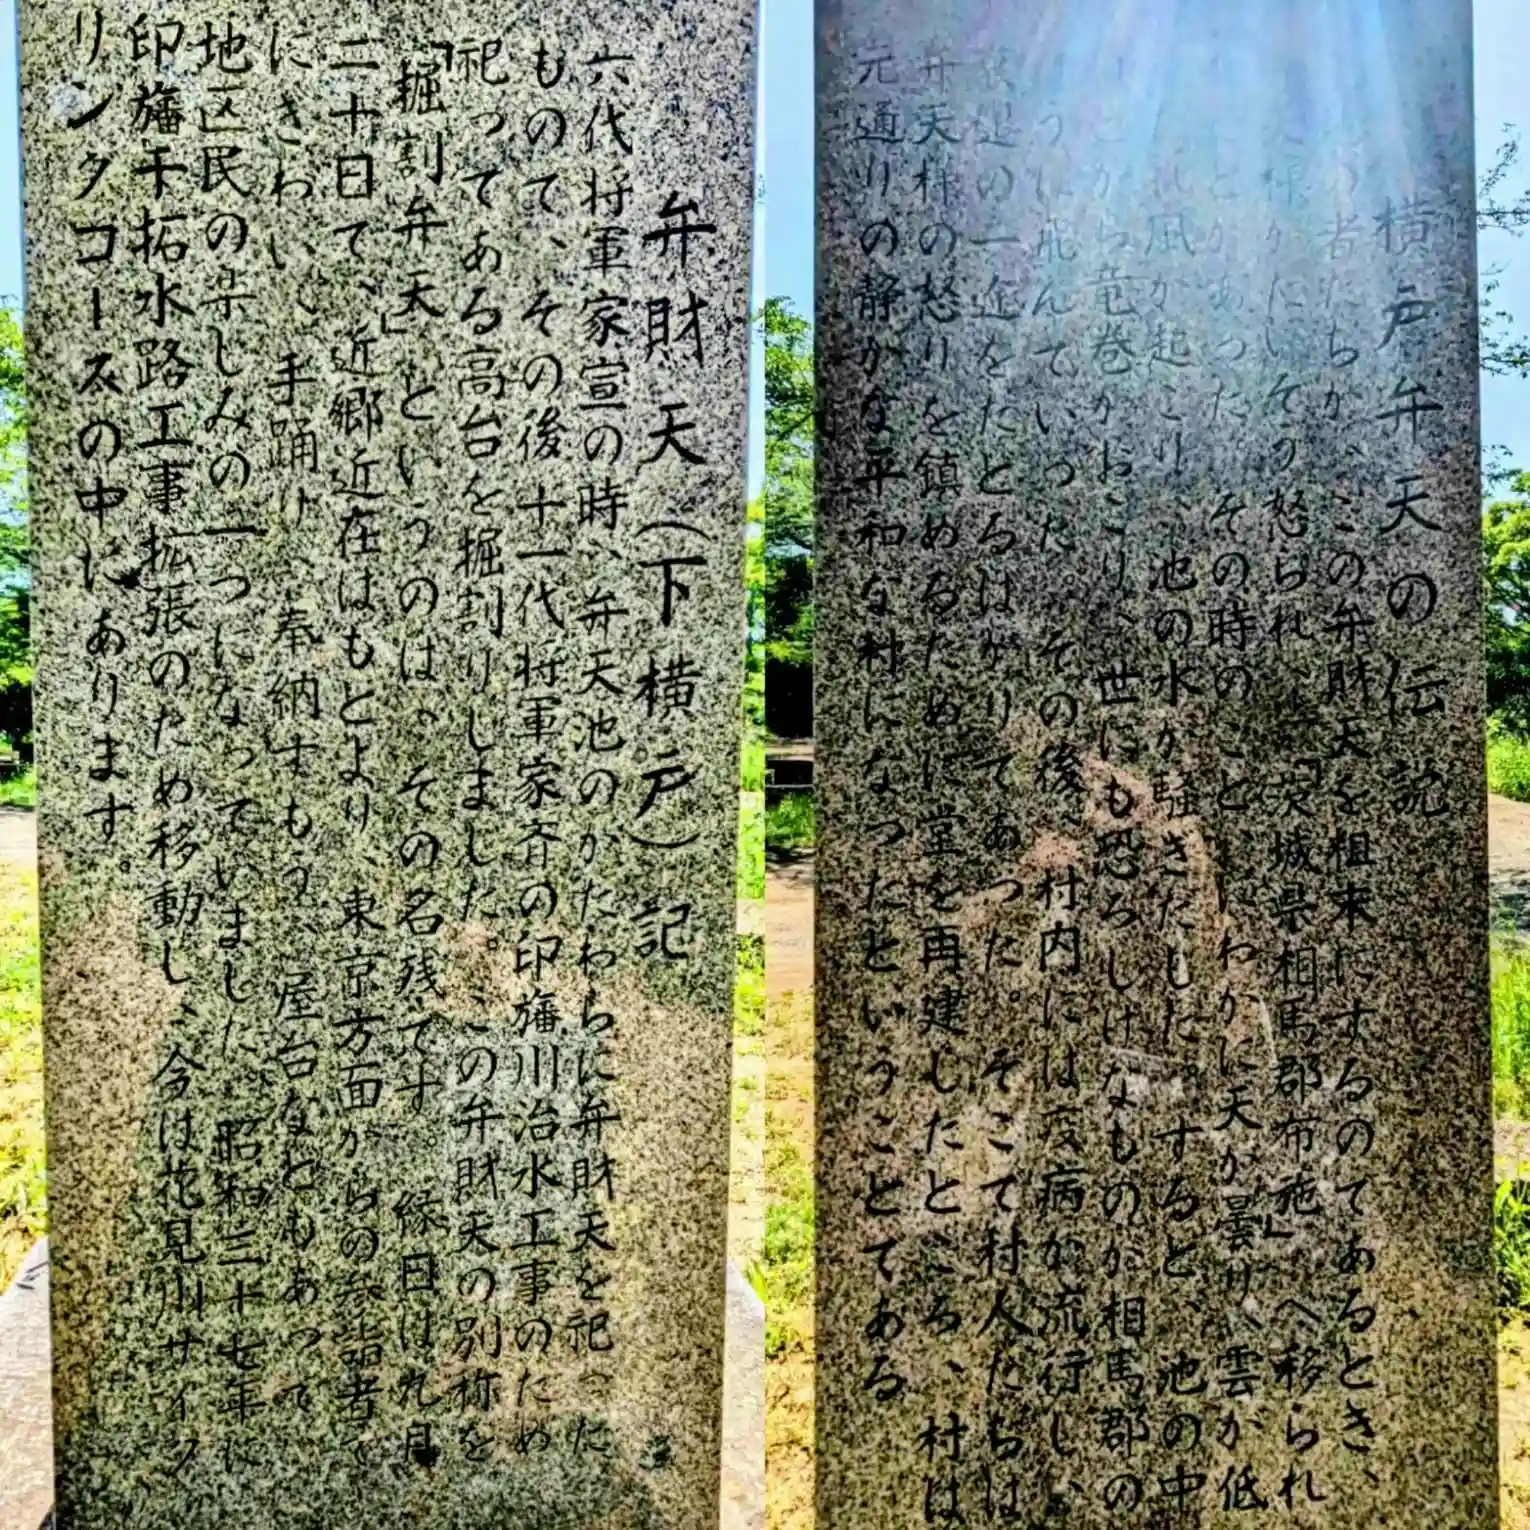 弁財天(下横戸)記
六代将軍家宣の時、弁天池のかたわらに弁財天を祀った
もので、その後、十一代将軍家斉の印旛川治水工事のため
祀ってある高台を掘割りしました。この弁財天の別称を
「掘割弁天」というのは、その名残です。縁日は九月
二十日で、近郷近在はもとより、東京方面からの参詣者で
にきわい、手踊り、奉納すもう、屋台などもあって
地区民の楽しみの一つになっていました。昭和三十七年に
印旛干拓水路工事拡張のため移動し、今は花見川サイク
リンクコースの中にあります。
横戸弁天の伝説
の者たちが、この弁財天を粗末にするのであるとき、
様がにいその怒られ、「茨城県相馬郡布施」へ移られ
とがあった。その時のこと、にわかに天が曇り、雲が低
れ風が起こり、池の水が騒ぎだした。すると、池の中
とから竜巻がおこり、世にも恐ろしげなものが相馬郡の
うに飛んでいった。その後、村内には疫病が流行し、
の一途をたどるばかりであった。そこで村人たちは
弁天様の怒りを鎮めるために堂を再建したところ、村は
元通りの静かな平和な村になったということである